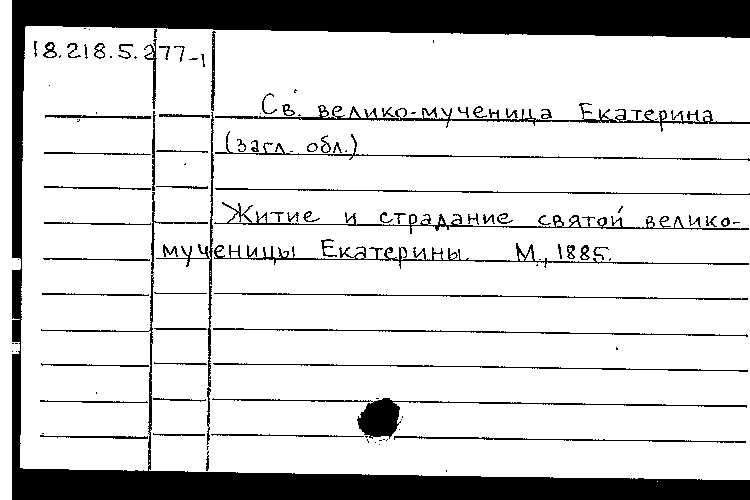 18.218.5.277-1
Св. велико-мученица Екатерина
(загл. обл.)
Житие и страдание святой велико-
мученицы Екатерины. М., 1885.